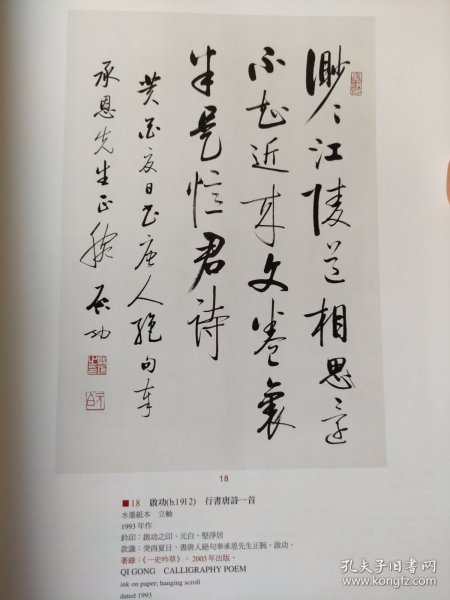 渺〻江陵道相思遠
不知近來文卷裏
半是憶君詩
癸酉夏日書唐人絕句奉
承恩先生正腕 啟功
18
■18 啟功(b.1912) 行書唐詩一首
水墨紙本 立軸
1993年作
鈐印：啟功之印、元白、堅淨居
款識：癸酉夏日，書唐人絕句奉承恩先生正腕。啟功。
著錄：《一史吟草》，2003年出版。
QI GONG CALLIGRAPHY POEM
ink on paper; hanging scroll
dated 1993
孔夫子旧书网